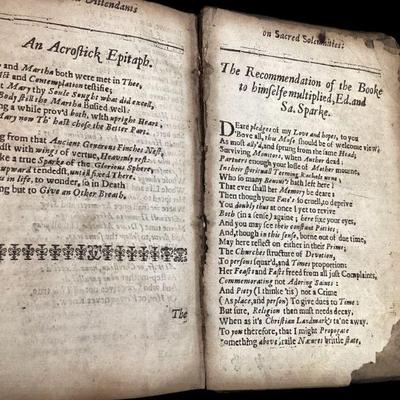 Attendants
An Acrostick Epitaph.
and Martha both were met in Thee,
and Contemplation testifie;
Mary thy Soule Sought what did excell,
Body still thy Martha Busied well:
a while prov'd both, with upright Heart,
now Th' hast chose the Better Part.
from that Ancient Generous Finches Nest,
with wings of vertue, Heavenly rest:
a true Sparke of the Glorious Sphere,
upward tendedst, untill fixed There.
in life, to wonder, is in Death
but to Give an Other Breath.
The
on Sacred Solemnities:
The Recommendation of the Booke
to himselfe multiplied, Ed. and
Sa. Sparke.
Deare pledges of my Love and hopes, to you
Above all, this Muse should be of welcome view;
As most ally'd, and sprung from the same Head;
Surviving Monitors, when Author dead:
Partners through your losse of Mother mourne,
In their spirituall Teeming Rachels urne;
Who so many Benoni's hath left here:
That ever shall her Memory be deare:
Then though your Fate's so cruell, to deprive
You doubly thus at once I yet to revive
Both (in a sense) againe; here fixe your eyes,
And you may see their constant Parties:
And, though in this sense, borne out of due time,
May here reflect on either in their Prime;
The Churches structure of Devotion,
To persons squar'd, and Times proportion:
Her Feasts and Fasts freed from all just Complaints,
Commemorating not Adoring Saints:
And Piety (I thinke 'tis) not a Crime
(As place, and person) To give dues to Time:
But sure, Religion then must needs decay,
When as it's Christian Landmark's ta'ne away.
To you therefore, that I might Propogate
Something above fraile Natures brittle state,